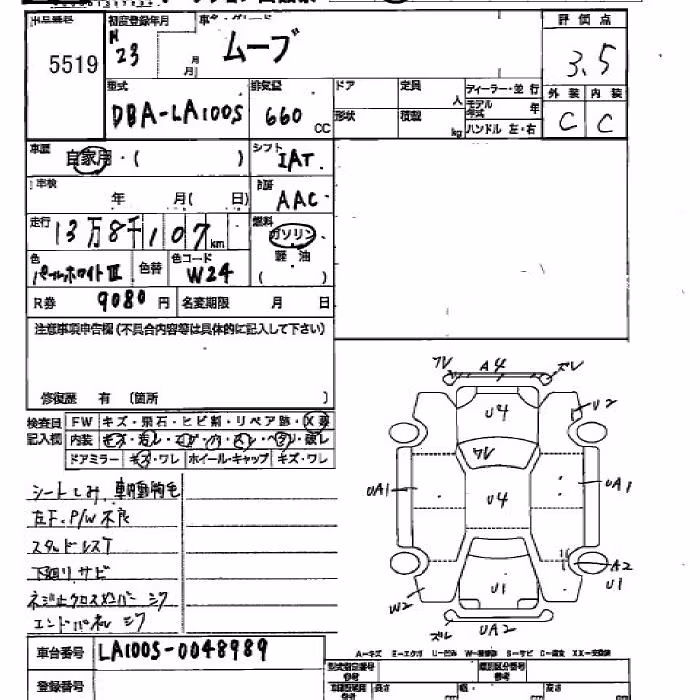 出品番号 初度登録年月 車名・グレード 評価点
5519 H 23 月 月 ムーブ 3.5
型式 排気量 ドア 定員 人 ディーラー・並行 外装 内装
DBA-LA100S 660 CC 形状 積載 kg モデル年式 年 C C
ハンドル 左・右
車歴 自家用・( ) シフト IAT
車検 年 月( 日) AAC
走行 13万8千107km 燃料 ガソリン・
軽油
色 パールホワイトⅢ 色替 色コード W24 ( )
R券 9080 円 名変期限 月 日
注意事項申告欄(不具合内容等は具体的に記入して下さい)
修復歴 有 (箇所 )
検査員 FW キズ・飛石・ヒビ割・リペア跡・X
記入欄 内装
ドアミラー キズ・ワレ ホイール・キャップ キズ・ワレ
左F.P/W不良
スタッドレスT
下廻りサビ
エンドパネル
車台番号 LA100S-0048989
登録番号
ワレ A4 ズレ
U4 U2
ワレ
UA1 U4 UA1
A2
U1
W2 U1
ズレ UA2
A-キズ E-エクボ U-凹み W-補修跡 S-サビ C-腐食 XX-交換済
型式指定番号 類別区分番号
長さ cm 幅 cm 高さ cm